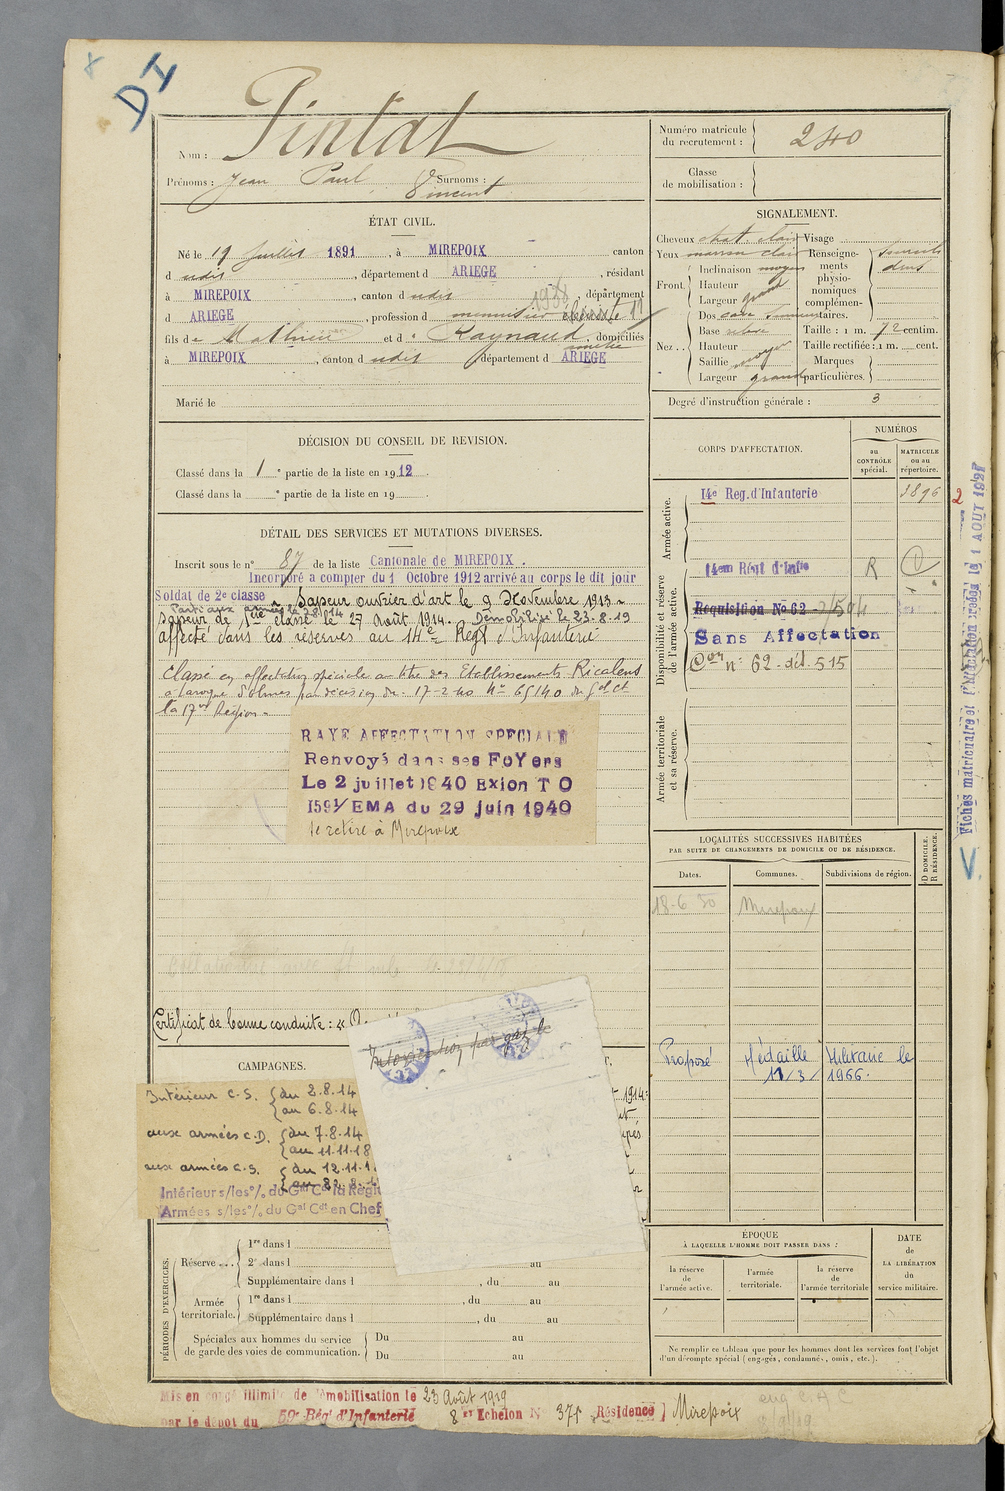 DI
Nom : Pintat
Prénoms : Jean Paul Surnoms : Vincent
Numéro matricule du recrutement : 240
Classe de mobilisation :
ÉTAT CIVIL.
Né le 19 Juillet 1891, à MIREPOIX canton
d udit, département d ARIEGE, résidant
à MIREPOIX, canton d udit, département
d ARIEGE, profession d menuisier ébéniste
fils de Mathieu et de Raynaud, domiciliés
à MIREPOIX, canton d udit département d ARIEGE
Marié le
SIGNALEMENT.
Cheveux chat. clair Visage
Yeux marron clair Renseignements physionomiques complémentaires.
Front. Inclinaison moyen
Hauteur
Largeur grand
Nez.. Dos cave
Base
Hauteur
Saillie moyen
Largeur grand
Taille : 1 m. 72 centim.
Taille rectifiée : 1 m. cent.
Marques particulières.
Degré d'instruction générale : 3
DÉCISION DU CONSEIL DE REVISION.
Classé dans la 1e partie de la liste en 1912.
Classé dans la e partie de la liste en 19
CORPS D'AFFECTATION.
NUMÉROS
au CONTRÔLE spécial.
MATRICULE ou au répertoire.
Armée active.
14e Reg. d'Infanterie
Disponibilité et réserve de l'armée active.
14em Regt d'Infie R
Réquisition No 62
Sans Affectation
Con n° 62 - dét. 515
Armée territoriale et sa réserve.
DÉTAIL DES SERVICES ET MUTATIONS DIVERSES.
Inscrit sous le n° 87 de la liste Cantonale de MIREPOIX.
Incorporé a compter du 1 Octobre 1912 arrivé au corps le dit jour
Soldat de 2e classe Sapeur ouvrier d'art le 9 Novembre 1913
Parti aux armées le
Sapeur de 1re classe le 27 Août 1914. Démobilisé le 23.8.19
affecté dans les réserves au 14e Regt d'Infanterie
Classé en affectation spéciale au titre des Etablissements Ricalens
à Laroque d'Olmes par décision du 17-2-40 No 65140 du Gal Ct
la 17me Région
RAYE AFFECTATION SPECIALE
Renvoyé dans ses FoYers
Le 2 juillet 1940 Exion T O
1591/EMA du 29 juin 1940
se retire à Mirepoix
LOCALITÉS SUCCESSIVES HABITÉES
PAR SUITE DE CHANGEMENTS DE DOMICILE OU DE RÉSIDENCE.
D DOMICILE. R RÉSIDENCE.
Dates. Communes. Subdivisions de région.
18-6 30 Mirepoix
Proposé Médaille Militaire le
11/3/ 1966.
Certificat de bonne conduite :
Intoxication par gaz le
CAMPAGNES.
Intérieur C.S. du 2.8.14
au 6.8.14
aux armées C.D. du 7.8.14
au 11.11.18
aux armées C.S. du 12.11.1
Intérieur s/les o/o du Gal Ct la Régio
Armées s/les o/o du Gal Cdt en Chef
PÉRIODES D'EXERCICES.
Réserve...
1re dans l
2e dans l au
Supplémentaire dans l , du au
Armée territoriale.
1re dans l , du au
Supplémentaire dans l , du au
Spéciales aux hommes du service de garde des voies de communication.
Du au
Du au
ÉPOQUE
À LAQUELLE L'HOMME DOIT PASSER DANS :
la réserve de l'armée active.
l'armée territoriale.
la réserve de l'armée territoriale
DATE de LA LIBÉRATION du service militaire.
Ne remplir ce tableau que pour les hommes dont les services font l'objet
d'un décompte spécial (engagés, condamnés, omis, etc.).
Mis en congé illimité de démobilisation le 23 Août 1919
par le dépôt du 59e Rég' d'Infanterie 8e Echelon N° 375 Résidence Mirepoix